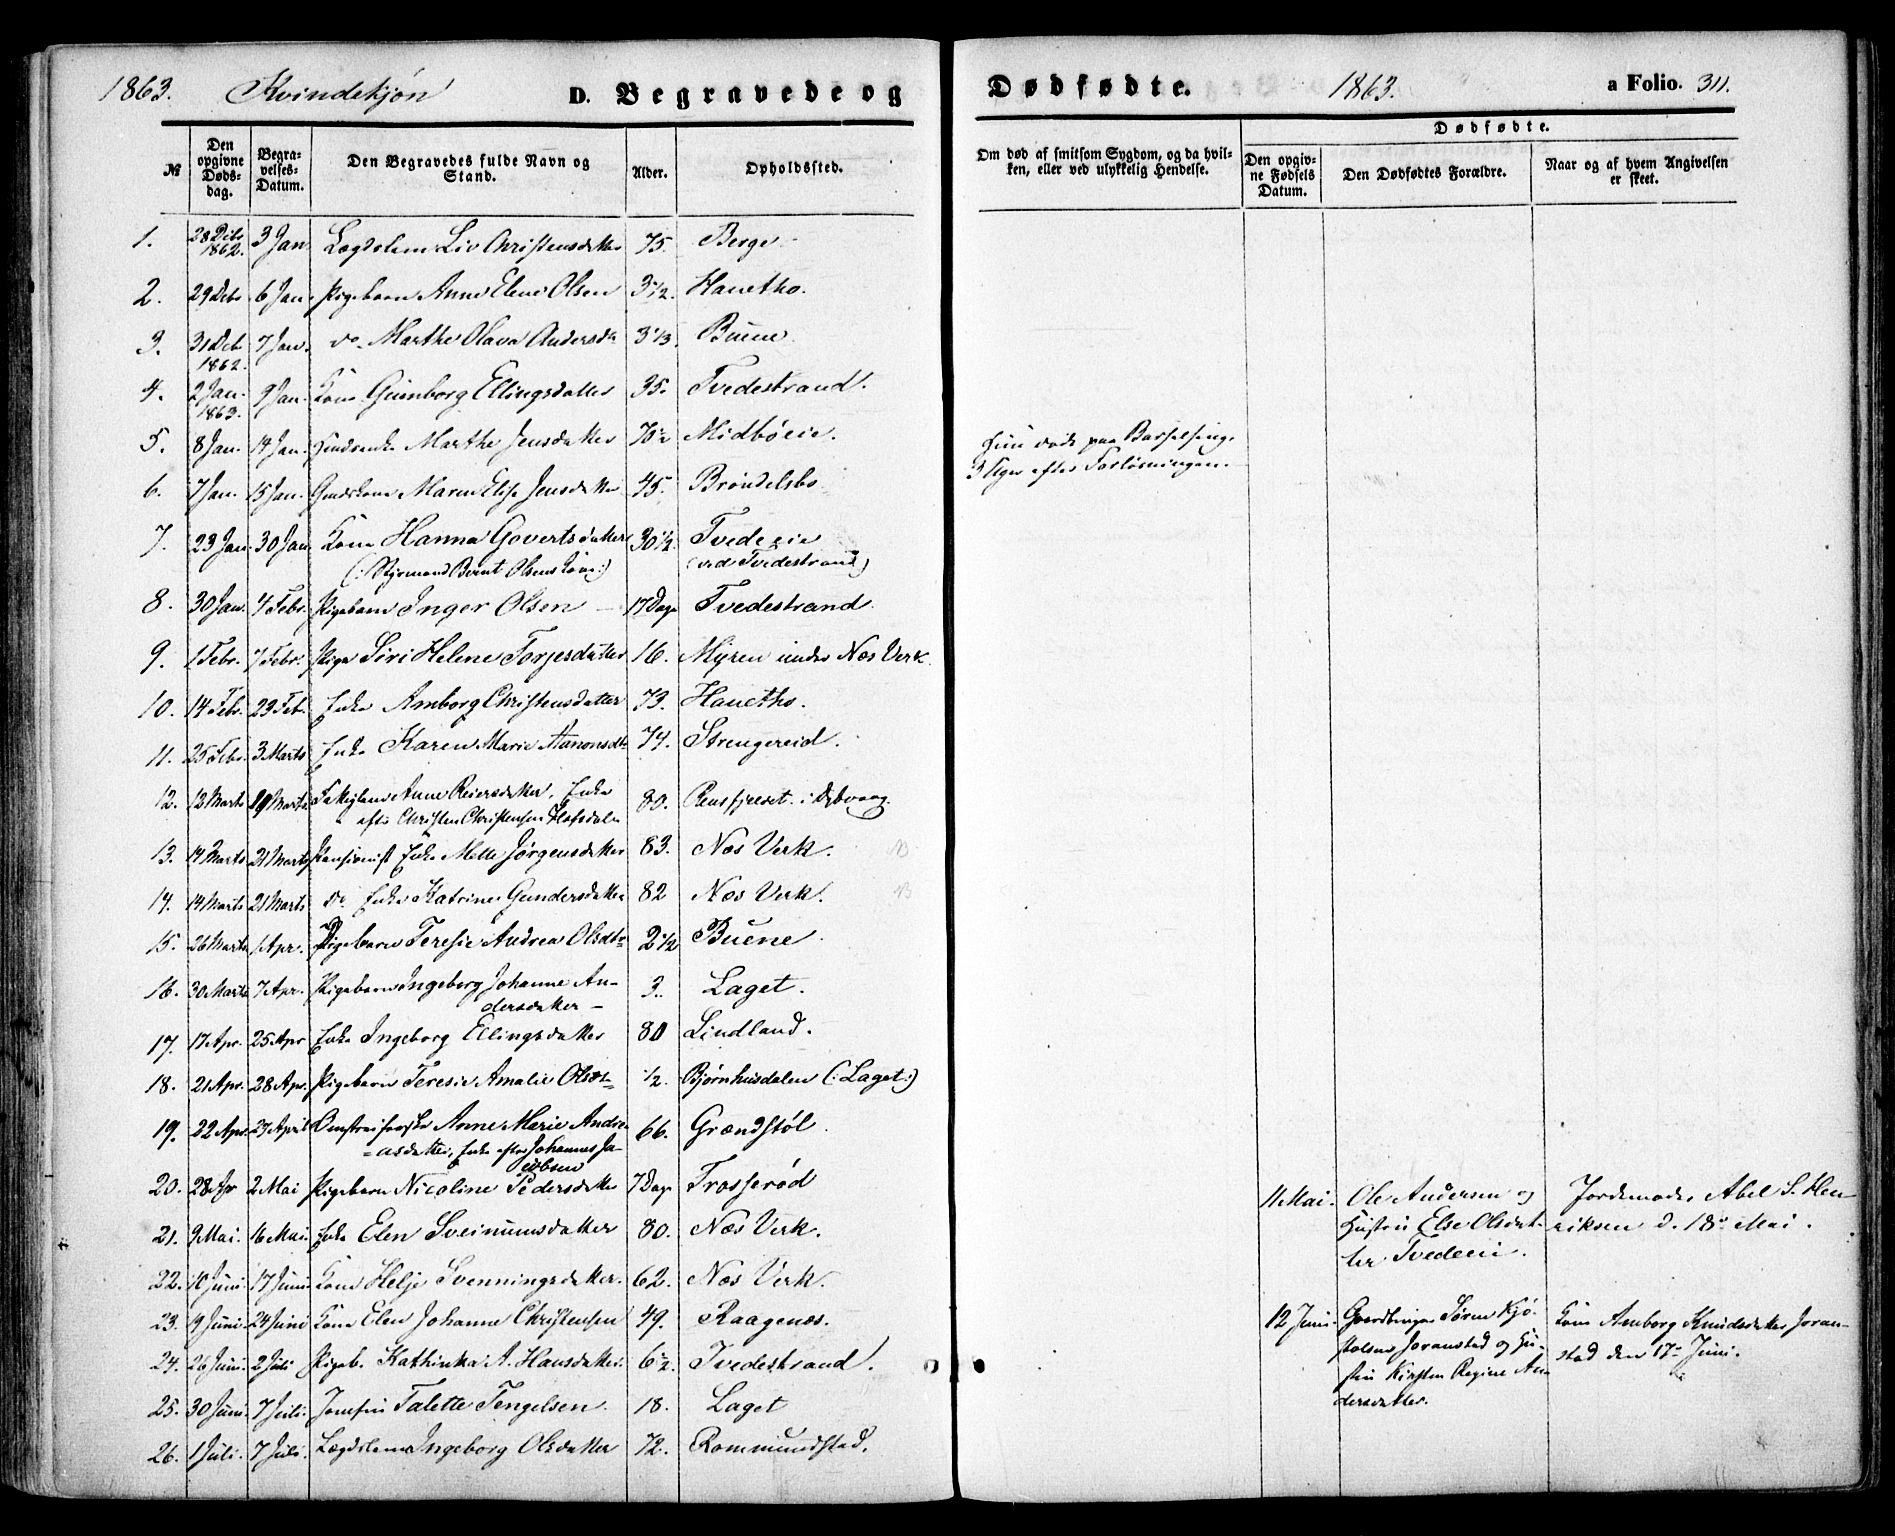 1863. Kvindekjøn D. Begravede og Dødfødte. 1863. a Folio. 311.
№ Den opgivne Døds-dag. Begra-velses-Datum. Den Begravedes fulde Navn og Stand. Alder. Opholdssted. Om død af smitsom Sygdom, og da hvil-ken, eller ved ulykkelig Hendelse. Dødfødte. Den opgiv-ne Fødsels Datum. Den Dødfødtes Forældre. Naar og af hvem Angivelsen er skeet.
1. 28 Decbr 1862. 3 Jan Lægdslem Liv Christensdatter 75. Berge.
2. 29 Decbr 6 Jan. Pigebarn Anne Elene Olsen 3 1/2. Hanetho.
3. 31 Decb 1862. 7 Jan. do. Marthe Olava Andersd. 3 1/3. Buene
4. 2 Jan. 1863. 9 Jan. Kone Gunborg Ellingsdatter 35. Tvedestrand.
5. 8 Jan. 14 Jan. Marthe Jensdatter 70 1/2 Midbøeie.
Hun døde paa Barselseng.
3 Uger efter Forløsningen.
6. 7 Jan. 15 Jan. Gaardkone Maren Elise Jensdatter 45. Brøndelsbo
7. 23 Jan. 30 Jan. Kone Hanna Govertsdatter 30 1/2. Tvedeeie
(: Styrmand Bernt Olsens Kone :) (ved Tvedestrand)
8. 30 Jan. 4 Febr. Pigebarn Inger Olsen 17 Dage Tvedestrand
9. 1 Febr. 7 Febr. Pige Siri Helene Torjesdatter 16. Myren under Næs Verk.
10. 14 Febr. 23 Feb. Enke Amborg Christensdatter 73. Hanetho.
11. 25 Febr. 3 Marts Enke Karen Marie Aanonsdt. 74. Strengereid.
12. 12 Marts 19 Marts Fattiglem Anne Reiersdatter, Enke 80. Rensfjeldet i Dybvaag.
efter Christen Christensen
13. 14 Marts 21 Marts Pensionist Enke Mette Jørgensdatter 83. Næs Verk. NB
14. 14 Marts 21 Marts do. Enke Katrine Gundersdatter 82 Næs Verk. NB
15. 26 Marts 1 Apr. Pigebarn Teresie Andrea Olsdtr 2 1/2 Buene
16. 30 Marts 7 Apr. Pigebarn Ingeborg Johanne An-
dersdatter 3. Laget.
17. 17 Apr. 25 Apr Enke Ingeborg Ellingsdatter 80 Lindland.
18. 21 Apr. 28 Apr. Pigebarn Teresie Amalie Olsdt 1/2. Bjørnhusdalen (: Laget :)
19. 22 Apr. 27 April Anne Marie Andre-
asdatter, Enke efter Johannes Ja-
cobsen 66. Grændstøl
20. 28 Apr 2 Mai Pigebarn Nicoline Pedersdatter 7 Dage Trosserød
11 Mai. Ole Andersen og
Hustru Else Olsdat-
ter Tvedeeie.
Jordemoder Abel S. Hen-
riksen d. 18 Mai.
21. 9 Mai. 16 Mai. Enke Elen Sveinumsdatter 80. Næs Verk.
22. 10 Juni 17 Juni Kone Helje Svenningsdatter. 62. Næs Verk.
23. 19 Juni 24 Juni Kone Elen Johanne Christensen 49. Raagenæs.
12 Juni. Gaardbruger Søren Kjø-
stolsen Joranstad og Hu-
stru Kirsten Regine An-
dersdatter.
Kone Amborg Knudsdatter Joran-
stad den 17 Juni.
24. 26 Juni. 2 Juli Pigeb. Kathinka A. Hansdatter. 6 1/2. Tvedestrand.
25. 30 Juni. 7 Juli. Jomfru Talette Tengelsen. 18. Laget
26. 1 Juli. 7 Juli. Lægdslem Ingeborg Olsdatter 72. Rommundstad.